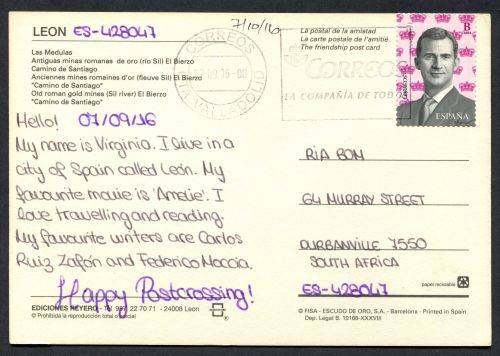 LEON ES-428047
7/10/16
Las Medulas
Antiguas minas romanas de oro (río Sil) El Bierzo
"Camino de Santiago"
Anciennes mines romaines d'or (fleuve Sil) El Bierzo
"Camino de Santiago"
Old roman gold mines (Sil river) El Bierzo
"Camino de Santiago"
Hello! 07/09/16
My name is Virginia. I live in a
city of Spain called León. My
favourite movie is 'Amelie'. I
love travelling and reading.
My favourite writers are Carlos
Ruiz Zafón and Federico Moccia.
Happy Postcrossing!
EDICIONES REYERO
24008 Leon
© Prohibida la reproducción total o parcial
La postal de la amistad
La carte postale de l'amitié
The friendship post card
CORREOS
VALLADOLID
CORREOS
LA COMPAÑÍA DE TODOS
B
CORREOS
ESPAÑA
RIA BOM
64 MURRAY STREET
DURBANVILLE 7550
SOUTH AFRICA
ES-428047
papel reciclable
© FISA - ESCUDO DE ORO, S.A. - Barcelona - Printed in Spain
Dep. Legal B. 19168-XXXIII